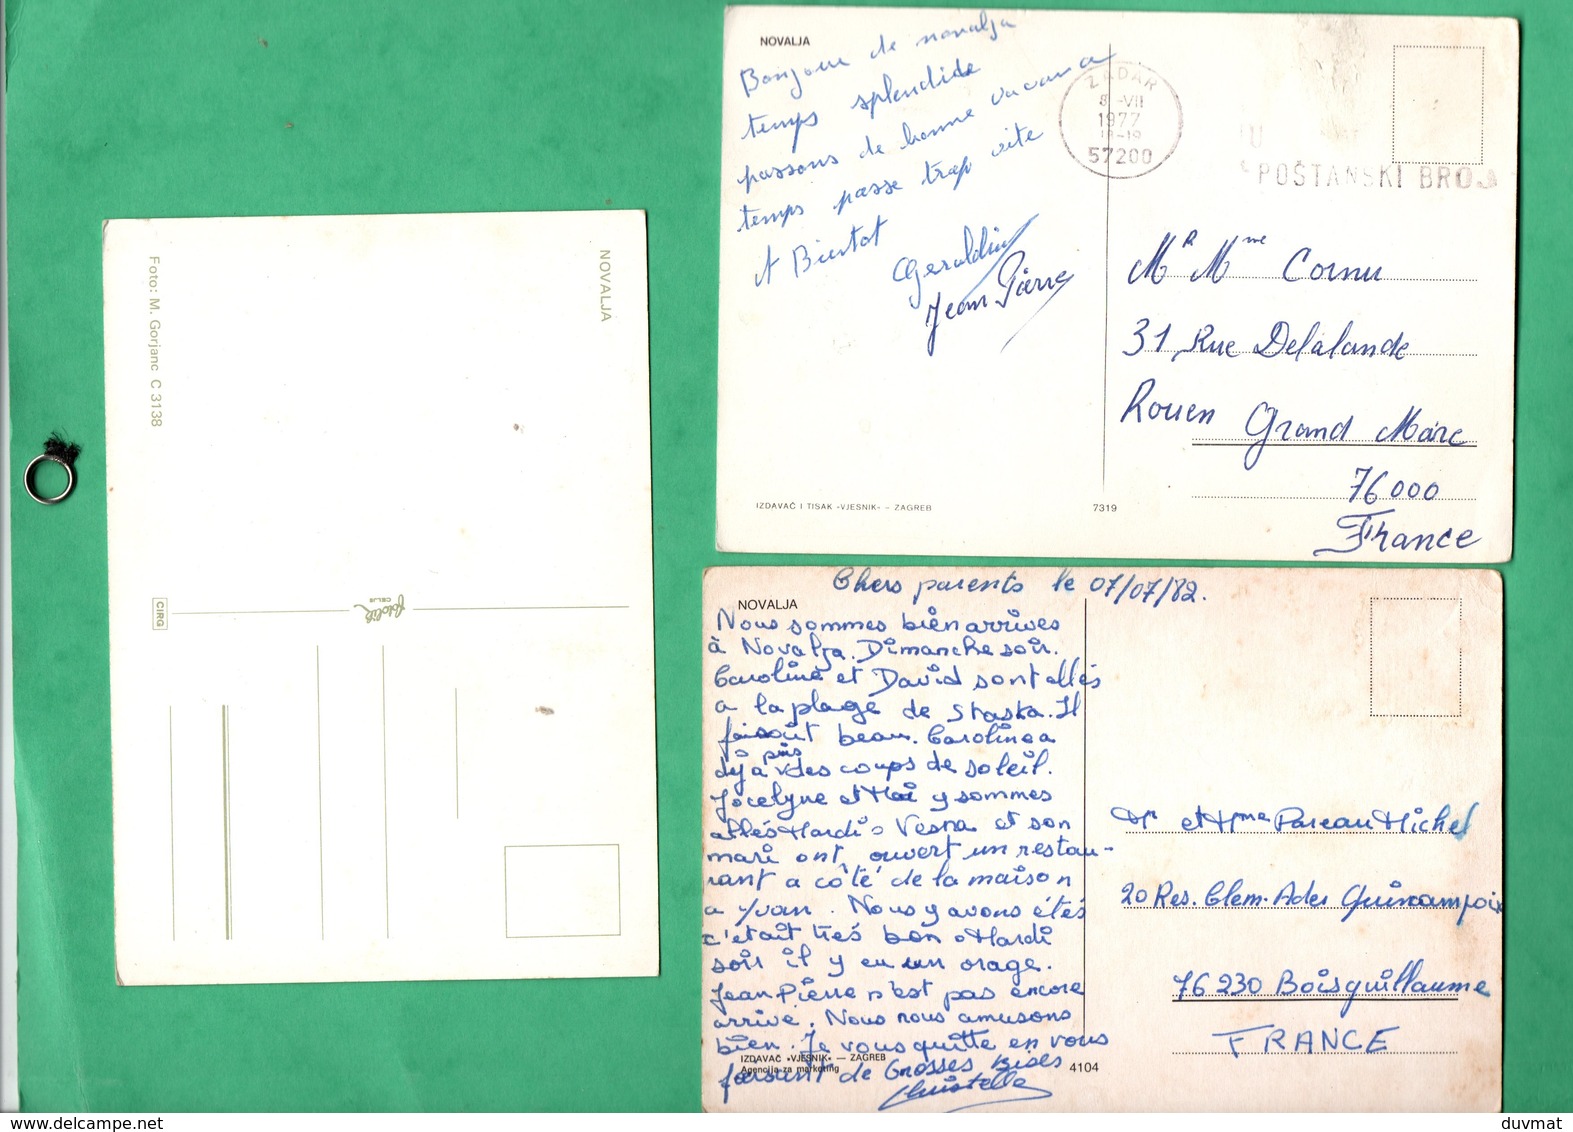 NOVALJA
Foto: M. Gorjanc C 3138
fotolik
CELJE
CIRG
NOVALJA
Bonjour de novalja
temps splendide
passons de bonne vacance
temps passe trop vite
A Bientot
Geraldin
Jean Pierre
ZADAR
8 -VII
1977
18-19
57200
POŠTANSKI BROJ
Mr Mme Cornu
31 Rue Delalande
Rouen Grand Mare
76000
France
IZDAVAČ I TISAK «VJESNIK» – ZAGREB
7319
Chers parents le 07/07/82.
NOVALJA
Nous sommes bien arrivés
à Novalja. Dimanche soir.
Caroline et David sont allés
a la plage de Staska. Il
faisait beau. Caroline a
déjà pris des coups de soleil.
Jocelyne et Moi y sommes
allés Mardi. Vesna et son
mari ont ouvert un restau-
rant a côté de la maison
a Yvan. Nous y avons étés
c'était très bon. Mardi
soir il y eu un orage.
Jean Pierre n'est pas encore
arrivé. Nous nous amusons
bien. Je vous quitte en vous
faisant de Grosses Bises
Christelle
Mr et Mme Pareau Michel
20 Res. Clem. Ader Quincampoix
76 230 Boisguillaume
FRANCE
IZDAVAČ «VJESNIK» — ZAGREB
Agencija za marketing
4104
www.delcampe.net
duvmat